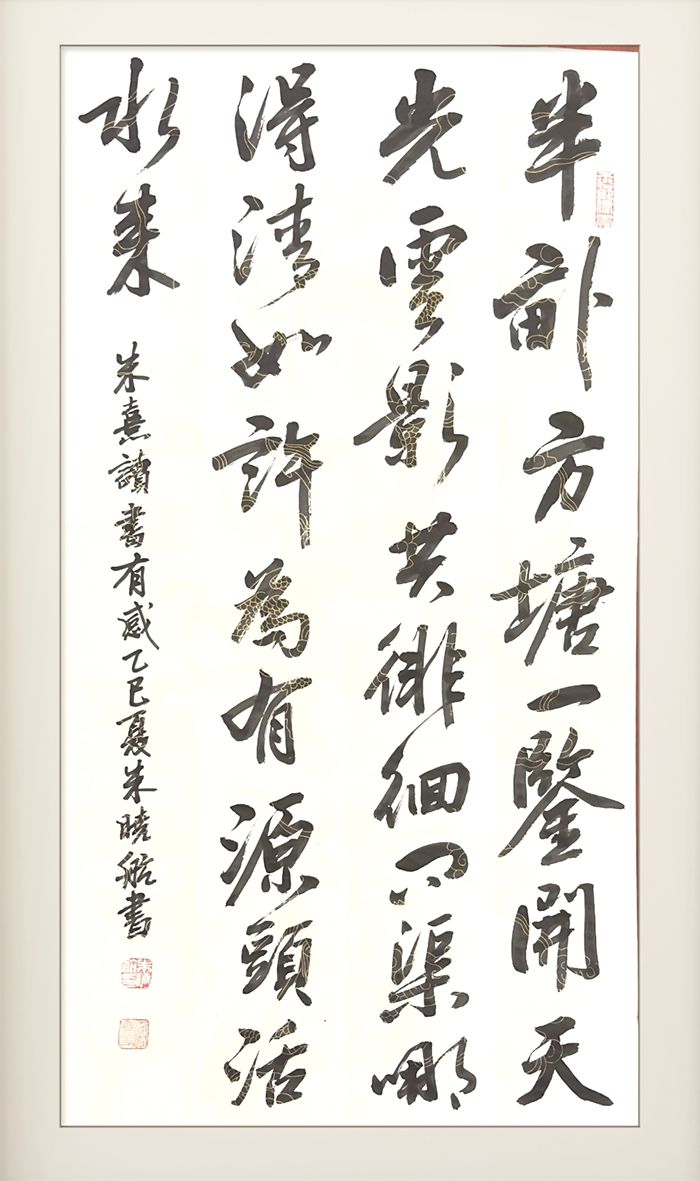 半畝方塘一鑒開天
光雲影共徘徊問渠哪
得清如許為有源頭活
水來
朱熹讀書有感乙巳夏朱曉書